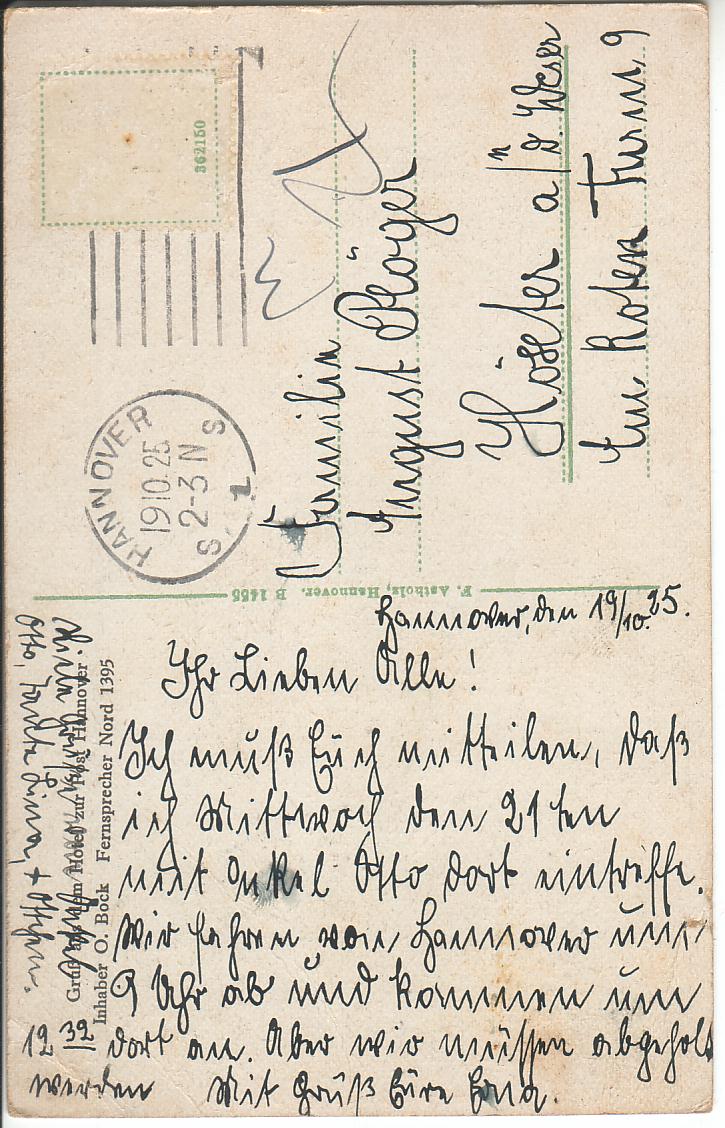 362150
HANNOVER
19.10.25
2-3 N
S S
1
Familie
August Plöger
Höxter a/d. Weser
Am Roten Turm 9
F. Astholz, Hannover. B 1455
Gruß aus dem Hotel zur Post Hannover.
Inhaber O. Bock Fernsprecher Nord 1395
Hannover, den 19/10.25.
Ihr Lieben Alle!
Ich muß Euch mitteilen, daß
ich Mittwoch den 21ten
mit Onkel Otto dort eintreffe.
Wir fahren von Hannover um
9 Uhr ab und kommen um
12 32 dort an. Aber wir müssen abgeholt
werden Mit Gruß Eure Erna.
Viele Grüße
Otto, Tante Lina, +